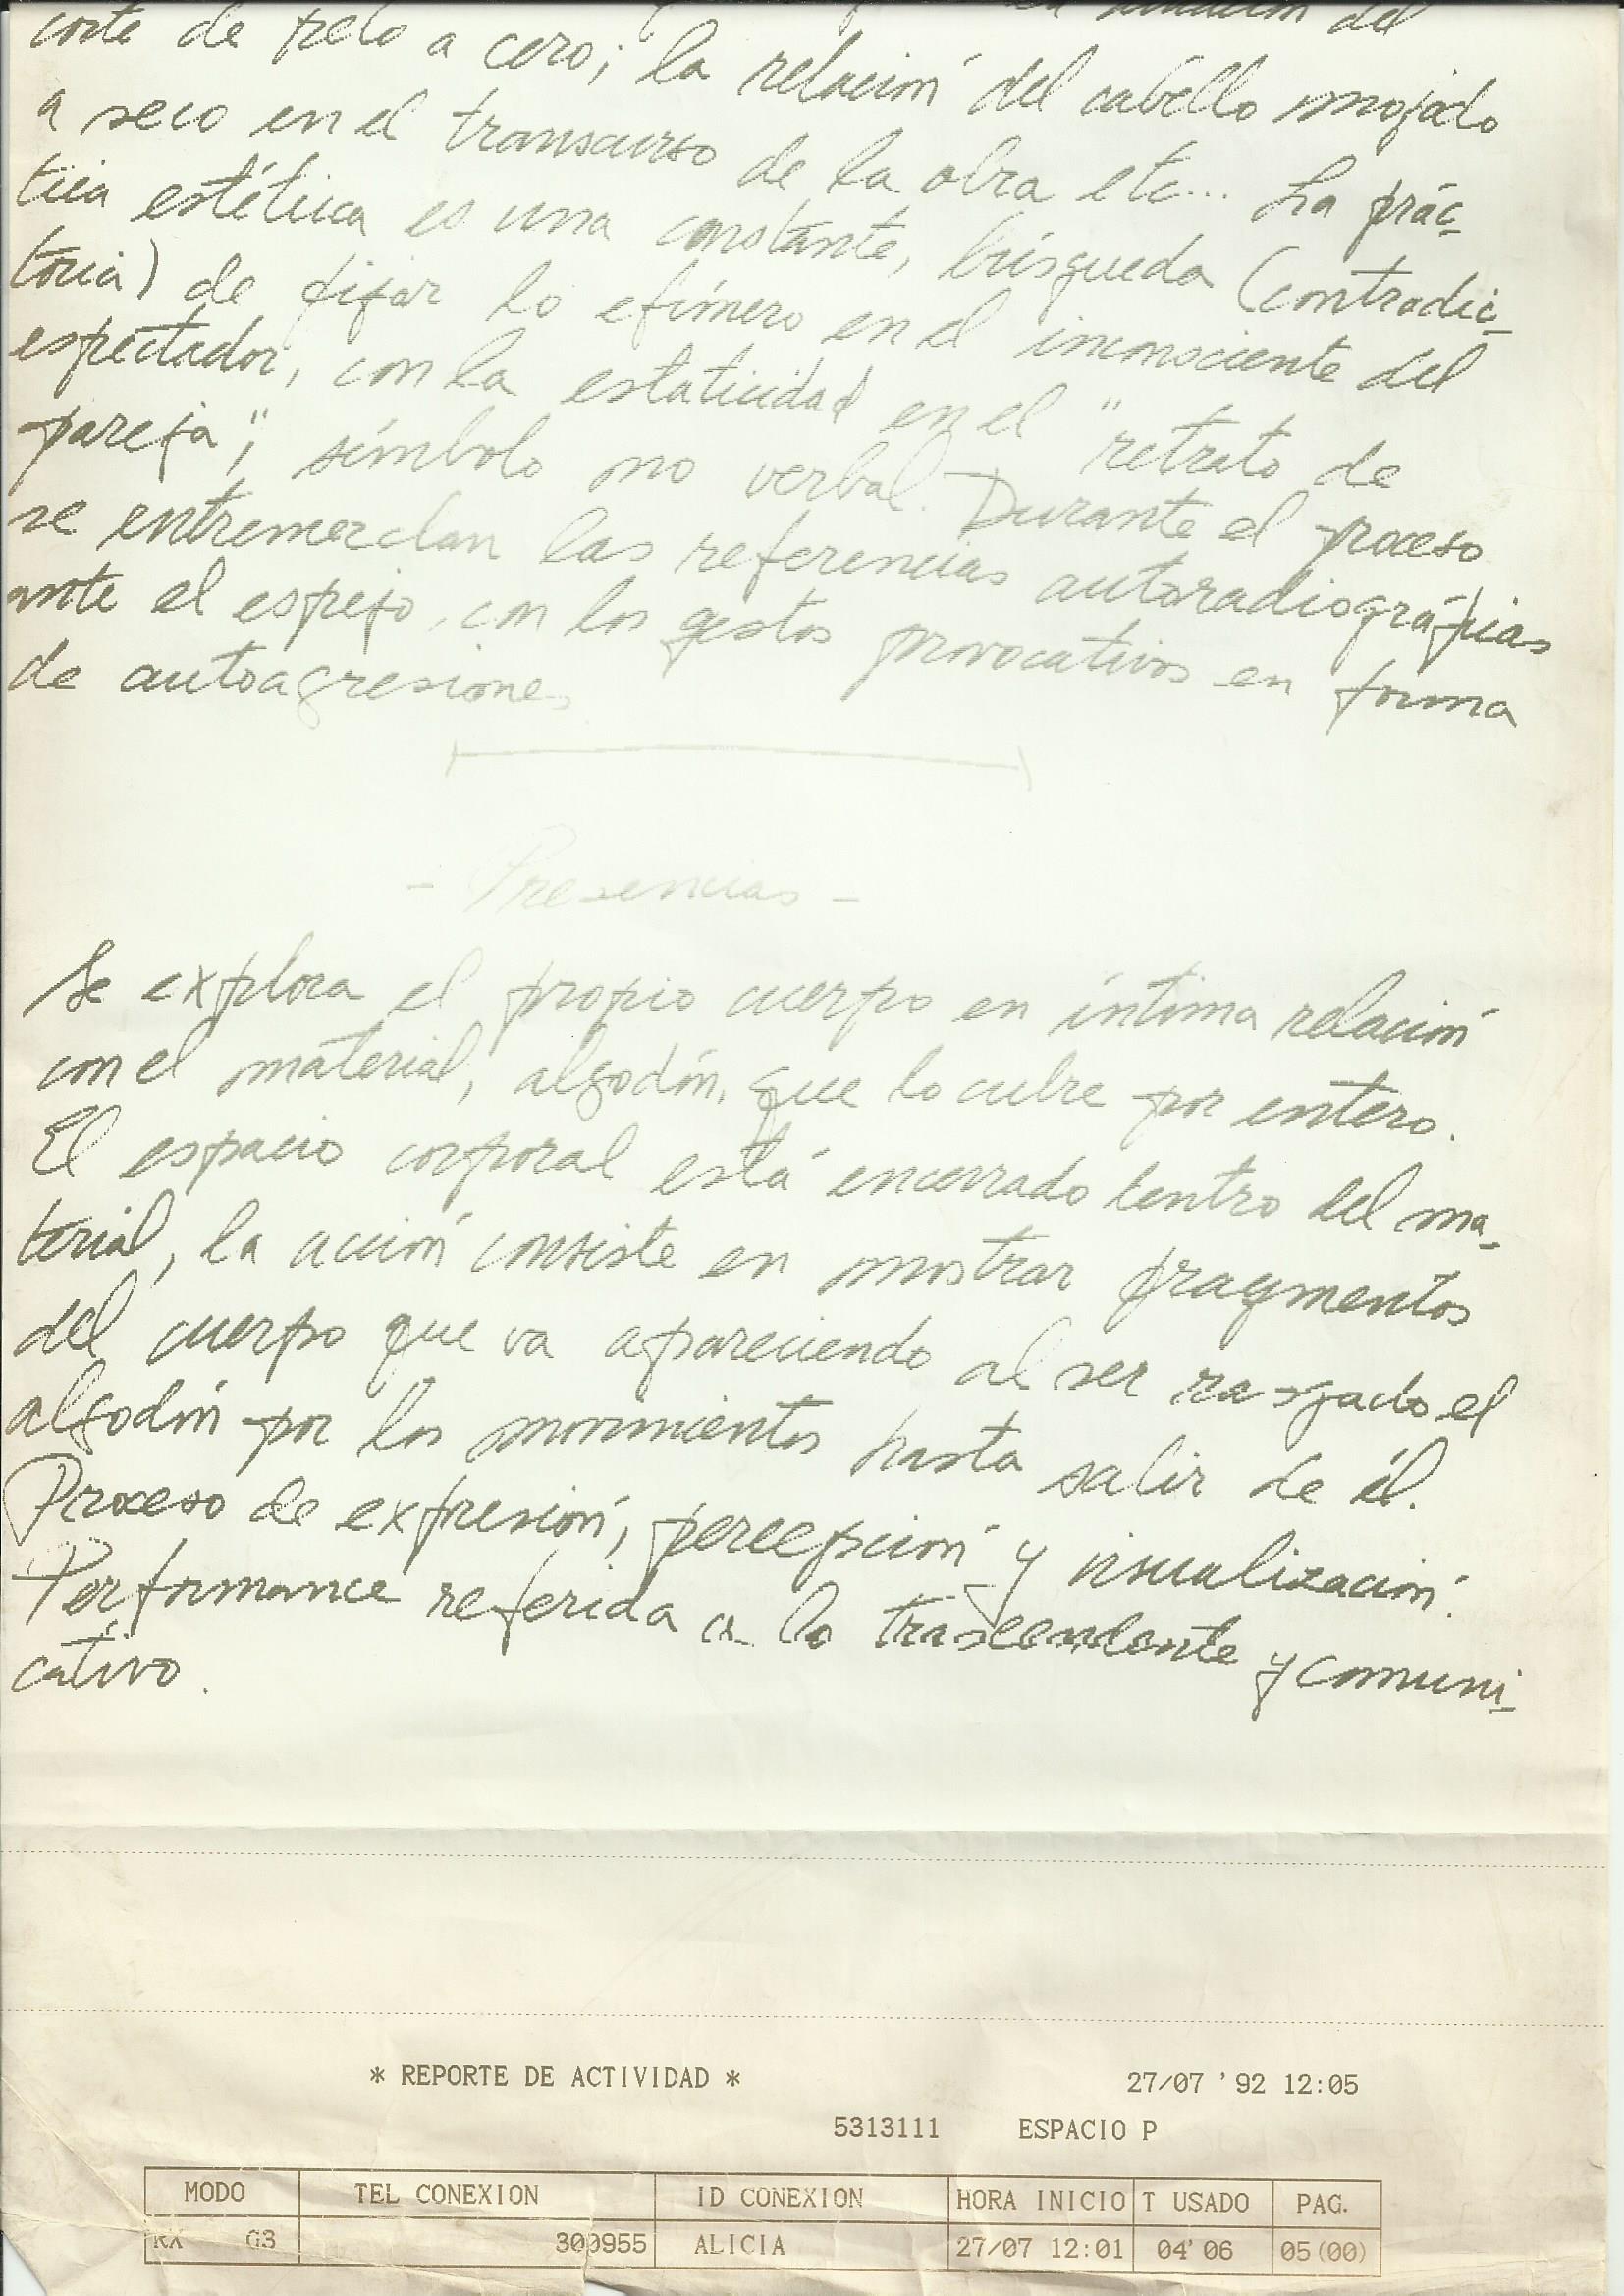 del
corte de pelo a cero; la relación del cabello mojado
a seco en el transcurso de la obra etc... La prác-
tica estética es una constante, búsqueda (contradic-
toria) de fijar lo efímero en el inconsciente del
espectador, con la estaticidad en el "retrato de
pareja", símbolo no verbal. Durante el proceso
se entremezclan las referencias autoradiográficas
ante el espejo, con los gestos provocativos en forma
de autoagresiones
- Presencias -
Se explora el propio cuerpo en íntima relación
con el material, algodón, que lo cubre por entero.
El espacio corporal está encerrado dentro del ma-
terial, la acción consiste en mostrar fragmentos
del cuerpo que va apareciendo al ser rasgado el
algodón por los movimientos hasta salir de él.
Proceso de expresión, percepción y visualización.
Performance referida a lo trascendente y comuni-
cativo.
* REPORTE DE ACTIVIDAD * 27/07 '92 12:05
5313111 ESPACIO P
MODO TEL CONEXION ID CONEXION HORA INICIO T USADO PAG.
RX G3 300955 ALICIA 27/07 12:01 04'06 05(00)